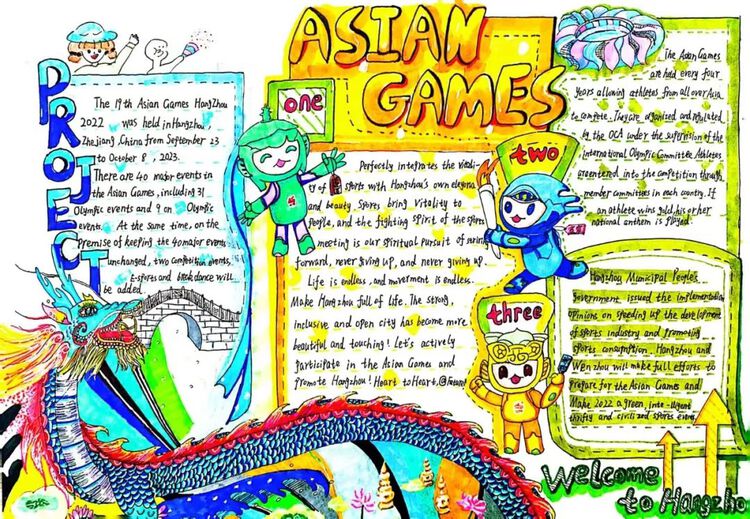 ASIAN
GAMES
PROJECT
The 19th Asian Games HangZhou
2022 was held in HangZhou,
Zhejiang, China from September 23
to October 8, 2023.
There are 40 major events in
the Asian Games, including 31
Olympic events and 9 on Olympic
events. At the same time, on the
Premise of keeping the 40 major events
unchanged, two competition events,
E-sports and breakdance will
be added.
one
Perfectly integrates the
of sports with Hangzhou's own elegance
and beauty. Sports bring vitality to
people, and the fighting spirit of the sports
meeting is our spiritual pursuit of
forward, never giving up, and never giving up.
Life is endless, and movement is endless.
Make Hangzhou full of life. The strong,
inclusive and open city has become more
beautiful and touching! Let's actively
participate in the Asian Games and
promote Hangzhou! Heart to Heart, @Future!
two
The Asian Games
are held every four
years allowing athletes from all over Asia
to compete. They are organised and regulated
by the OCA under the supervision of the
international Olympic Committee. Athletes
are entered into the competition through
member committees in each country. If
an athlete wins gold, his or her
national anthem is played.
three
Hangzhou Municipal People's
Government issued the implementation
opinions on speeding up the development
of sports industry and promoting
sports consumption. Hangzhou and
Wenzhou will make full efforts to
prepare for the Asian Games and
Make 2022 a green,
thrifty and civilized sports event.
Welcome
to Hangzhou